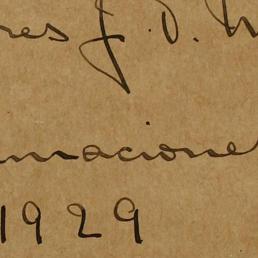 res J. D.
macione
1929